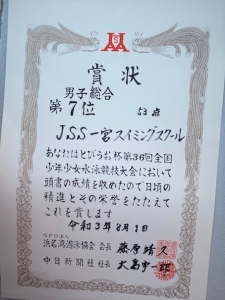 賞状
男子総合
第7位 53点
JSS一宮スイミングスクール
あなたはとびうお杯第36回全国
少年少女水泳競技大会において
頭書の成績を収めたので日頃の
精進とその栄誉をたたえて
これを賞します
令和3年8月1日
NPO法人
浜名湾游泳協会 会長 藤原靖久
中日新聞社 社長 大島宇一郎